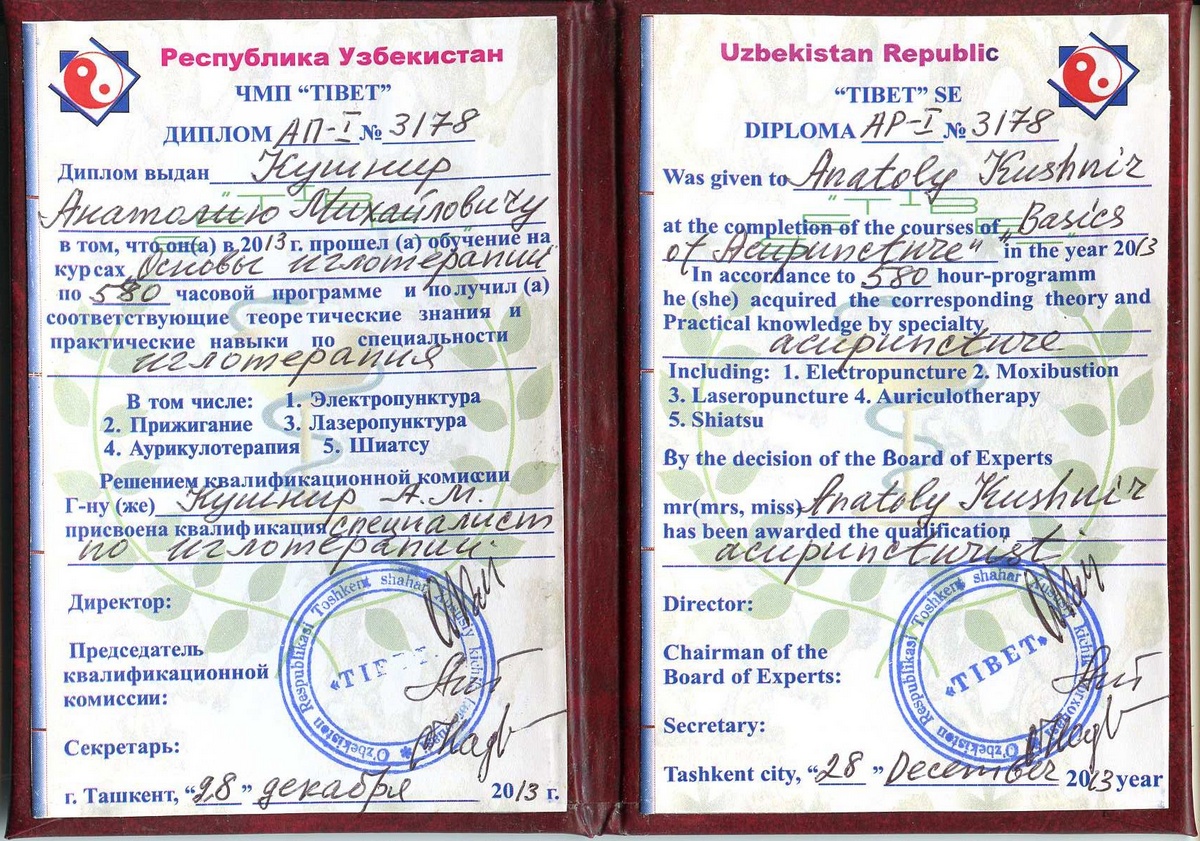 Республика Узбекистан
ЧМП “TIBET”
ДИПЛОМ АП-I № 3178
Диплом выдан Кушнир
Анатолию Михайловичу
в том, что он(а) в 2013 г. прошел (а) обучение на
курсах Основы иглотерапии
по 580 часовой программе и получил (а)
соответствующие теоретические знания и
практические навыки по специальности
иглотерапия
В том числе: 1. Электропунктура
2. Прижигание 3. Лазеропунктура
4. Аурикулотерапия 5. Шиатсу
Решением квалификационной комиссии
Г-ну (же) Кушнир А.М.
присвоена квалификация специалист
по иглотерапии.
Директор:
Председатель
квалификационной
комиссии:
Секретарь:
г. Ташкент, “28” декабря 2013 г.
O'zbekiston Respublikasi Toshkent shahar
«TIBET»
Uzbekistan Republic
“TIBET” SE
DIPLOMA AP-I № 3178
Was given to Anatoly Kushnir
at the completion of the courses of „Basics
of Acupuncture“ in the year 2013
In accordance to 580 hour-programm
he (she) acquired the corresponding theory and
Practical knowledge by specialty
acupuncture
Including: 1. Electropuncture 2. Moxibustion
3. Laseropuncture 4. Auriculotherapy
5. Shiatsu
By the decision of the Board of Experts
mr(mrs, miss) Anatoly Kushnir
has been awarded the qualification
acupuncturist.
Director:
Chairman of the
Board of Experts:
Secretary:
Tashkent city, “28” December 2013 year
O'zbekiston Respublikasi Toshkent shahar
«TIBET»